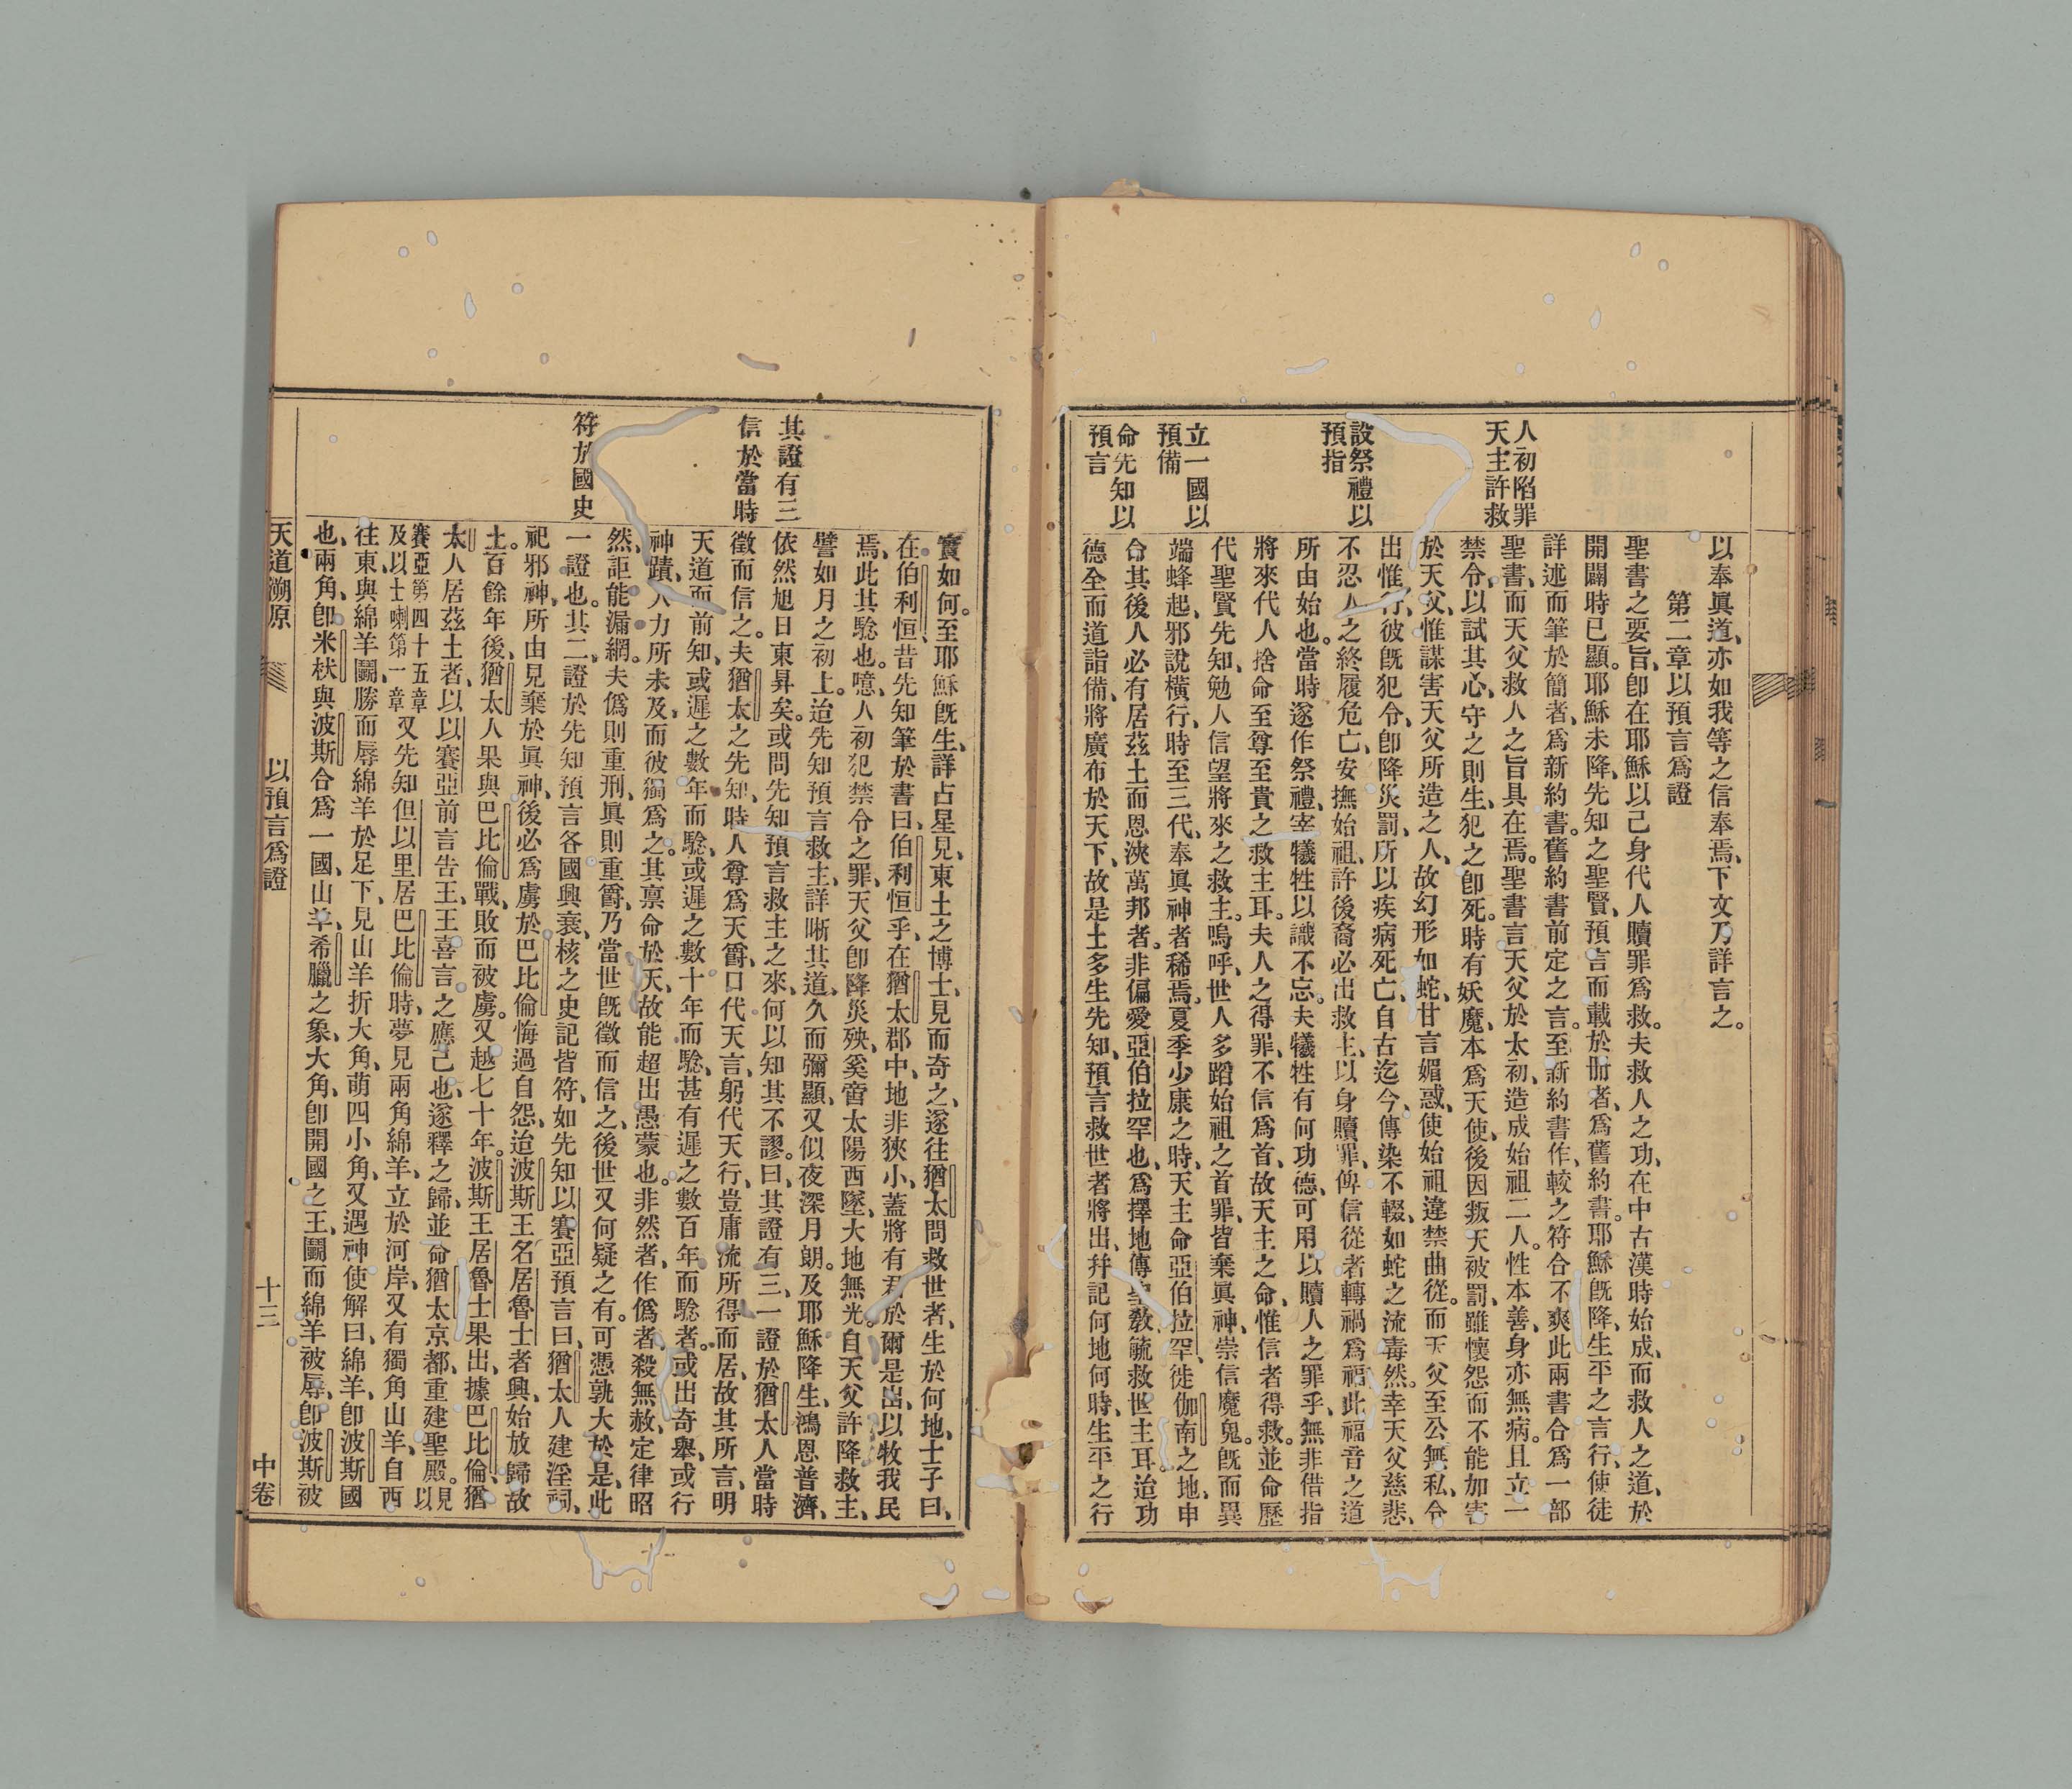 人初陷罪
天主許救
設祭禮以
預指
立一國以
預備
命先知以
預言
以奉眞道、亦如我等之信奉焉、下文乃詳言之。
第二章以預言爲證
聖書之要旨、卽在耶穌以己身代人贖罪爲救。夫救人之功、在中古漢時始成、而救人之道、於
開闢時已顯。耶穌未降、先知之聖賢、預言而載於册者、爲舊約書。耶穌旣降、生平之言行、使徒
詳述而筆於簡者、爲新約書。舊約書前定之言、至新約書作、較之符合不爽、此兩書合爲一部
聖書、而天父救人之旨具在焉。聖書言天父於太初、造成始祖二人。性本善、身亦無病。且立一
禁令、以試其心、守之則生、犯之卽死。時有妖魔、本爲天使、後因叛天被罰、雖懷怨而不能加害
於天父、惟謀害天父所造之人、故幻形如蛇、甘言媚惑、使始祖違禁曲從。而天父至公無私、令
出惟行、彼旣犯令、卽降災罰、所以疾病死亡、自古迄今、傳染不輟、如蛇之流毒然。幸天父慈悲、
不忍人之終履危亡、安撫始祖、許後裔必出救主、以身贖罪、俾信從者轉禍爲福、此福音之道
所由始也。當時遂作祭禮、宰犧牲以識不忘。夫犧牲有何功德、可用以贖人之罪乎、無非借指
將來代人捨命至尊至貴之救主耳。夫人之得罪、不信爲首、故天主之命、惟信者得救。並命歷
代聖賢先知、勉人信望將來之救主。嗚呼、世人多蹈始祖之首罪、皆棄眞神、崇信魔鬼。旣而異
端蜂起、邪說橫行、時至三代、奉眞神者稀焉。夏季少康之時、天主命亞伯拉罕、徙伽南之地、申
命其後人必有居茲土而恩浹萬邦者。非偏愛亞伯拉罕也、爲擇地傳聖敎、毓救世主耳。迨功
德全而道詣備、將廣布於天下、故是土多生先知、預言救世者將出、幷記何地何時、生平之行
其證有三
信於當時
符於國史
實如何。至耶穌旣生、詳占星見、東土之博士、見而奇之、遂往猶太問救世者、生於何地、士子曰、
在伯利恒、昔先知筆於書曰、伯利恒乎、在猶太郡中、地非狹小、蓋將有君於爾是出、以牧我民
焉、此其騐也。噫、人初犯禁令之罪、天父卽降災殃、奚啻太陽西墜、大地無光。自天父許降救主、
譬如月之初上。迨先知預言救主、詳晰其道、久而彌顯、又似夜深月朗。及耶穌降生、鴻恩普濟、
依然旭日東昇矣。或問先知預言救主之來、何以知其不謬。曰、其證有三、一證於猶太人當時
徵而信之。夫猶太之先知、時人尊爲天爵、口代天言、躬代天行、豈庸流所得而居、故其所言、明
天道而前知、或遲之數年而騐、或遲之數十年而騐、甚有遲之數百年而騐者。或出奇舉、或行
神蹟、人力所未及、而彼獨爲之。其禀命於天、故能超出愚蒙也。非然者、作僞者、殺無赦、定律昭
然、詎能漏網。夫僞則重刑、眞則重爵、乃當世旣徵而信之、後世又何疑之有。可憑孰大於是、此
一證也。其二、證於先知預言各國興衰、核之史記皆符、如先知以賽亞預言曰、猶太人建淫祠、
祀邪神、所由見棄於眞神、後必爲虜於巴比倫、悔過自怨、迨波斯王名居魯士者興、始放歸故
土。百餘年後、猶太人果與巴比倫戰、敗而被虜。又越七十年。波斯王居魯士果出、據巴比倫、猶
太人居茲土者、以以賽亞前言告王、王喜言之應己也、遂釋之歸、並命猶太京都、重建聖殿。見以
賽亞第四十五章及以士喇第一章又先知但以里居巴比倫時、夢見兩角綿羊、立於河岸、又有獨角山羊、自西
往東、與綿羊鬭、勝而辱綿羊於足下、見山羊折大角、萌四小角、又遇神使解曰、綿羊、卽波斯國
也、兩角、卽米杕與波斯合爲一國、山羊、希臘之象、大角、卽開國之王、鬭而綿羊被辱、卽波斯被
天道溯原
以預言爲證
十三
中卷